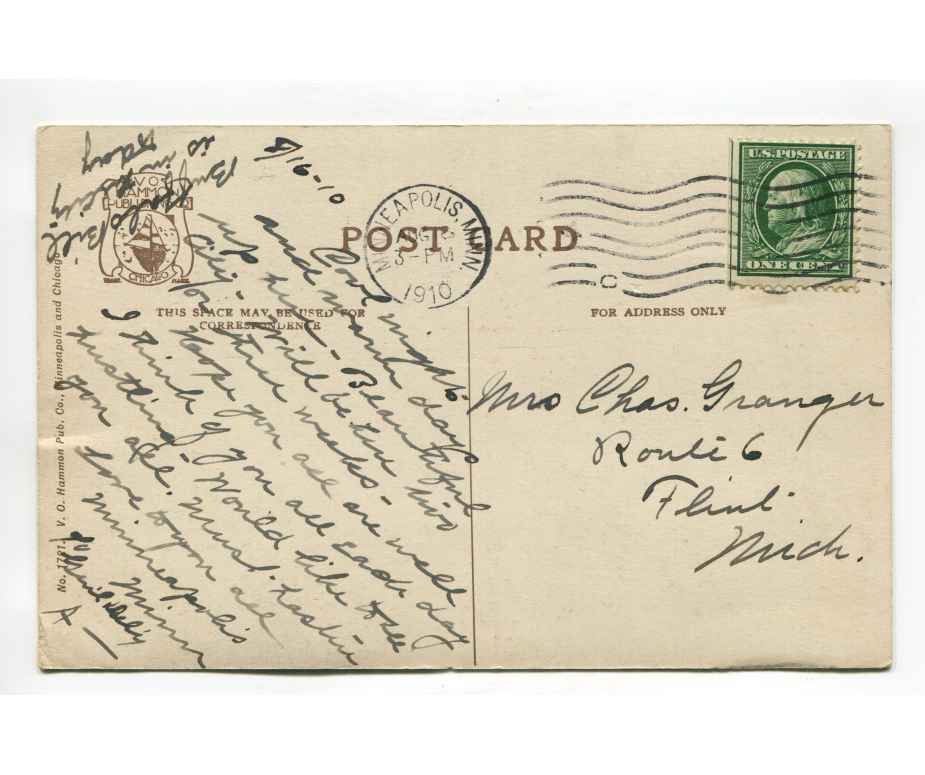 POST CARD
THIS SPACE MAY BE USED FOR
CORRESPONDENCE
FOR ADDRESS ONLY
V. O.
HAMMON
PUBLISHING
CHICAGO
TRADE MARK
No. 1721. V. O. Hammon Pub. Co., Minneapolis and Chicago
MINNEAPOLIS, MINN.
3-PM
1910
C
U.S. POSTAGE
ONE CENT
8/16-10
Cool nights
and warm days
up here - Beautiful
City - Will be here two
or three weeks -
Hope you all are well
I think of you all each day
hustling - Would like to see
you all.
Love to you all
Minneapolis
Minn
Buffalo Bill
is in City
today
Mrs Chas. Granger
Route 6
Flint
Mich.